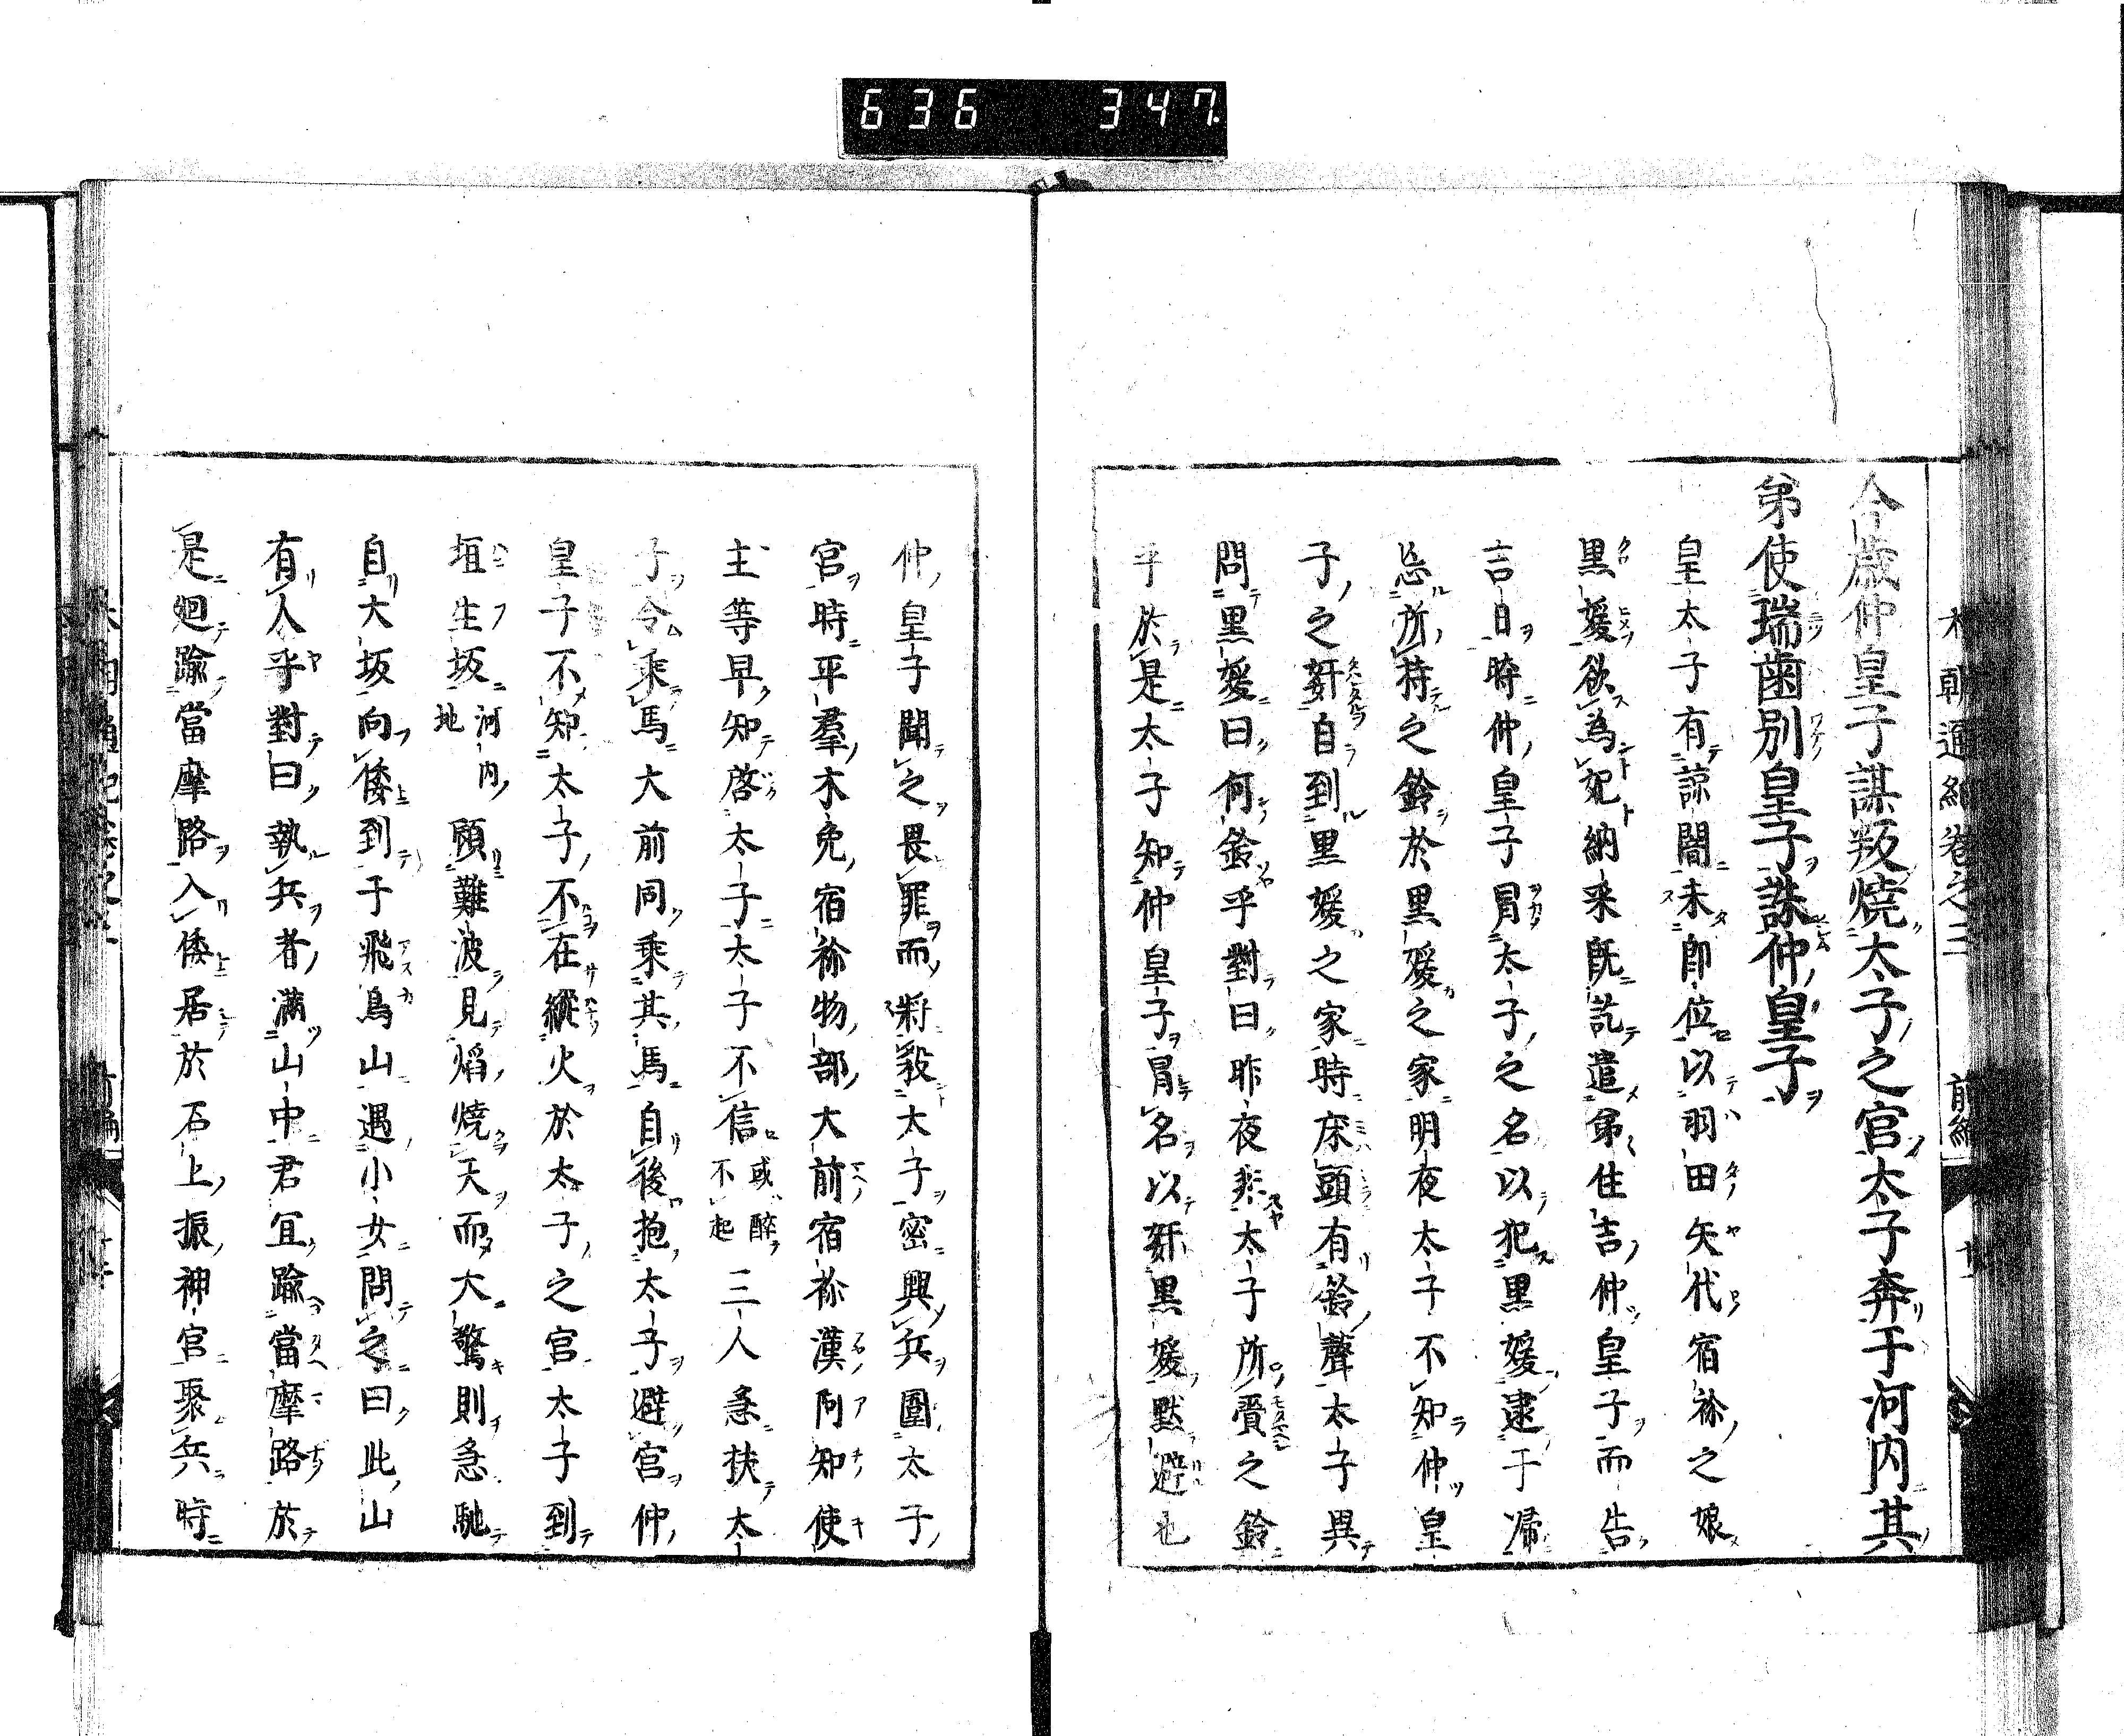 636 347.
本朝通紀卷之三 前編
今歳仲皇子謀叛燒太子之宮太子奔于河内其
弟使瑞齒別皇子誅仲皇子
皇太子有諒闇未即位以羽田矢代宿祢之娘
黒媛欲為妃納采既訖遣弟住吉仲皇子而告
吉日時仲皇子冒太子之名以犯黒媛逮于帰
忘所持之鈴於黒媛之家明夜太子不知仲皇
子之姧自到黒媛之家時床頭有鈴聲太子異
問黒媛曰何鈴乎對曰昨夜非太子所賷之鈴
乎於是太子知仲皇子冒名以姧黒媛默避也
仲皇子聞之畏罪而將殺太子密興兵圍太子
宮時平羣木兔宿祢物部大前宿祢漢阿知使
主等早知啓太子太子不信或醉不起三人急扶太
子令乘馬大前同乘其馬自後抱太子避宮仲
皇子不知太子不在縱火於太子之宮太子到
埴生坂河内地顧難波見焰燒天而大驚則急馳
自大坂向倭到于飛鳥山遇小女問之曰此山
有人乎對曰執兵者滿山中君宜踰當摩路於
是廻踰當摩路入倭居於石上振神宮聚兵時